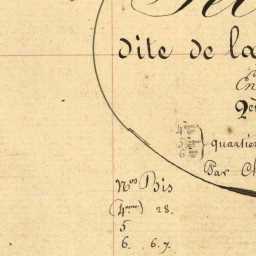 dite de la
En
2e
quartie
Par Ch
Nos Bis
(4eme) 28.
5
6. 6.7.